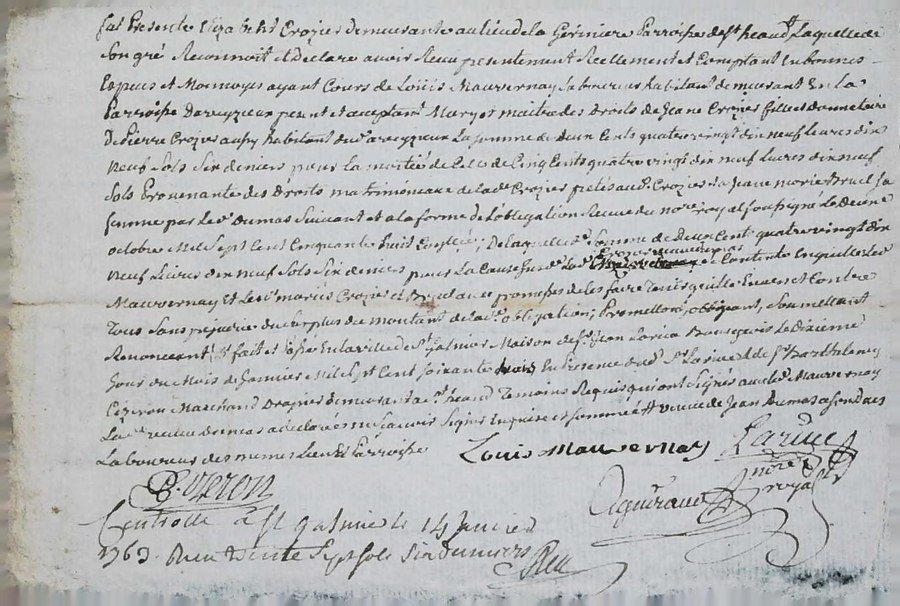 fut Presente Elizabeth Crozier demeurante au lieu de la Gériniere Parroisse de St heand Laquelle de
Son gré Reconnoit et declare avoir Reçu presentement Reellement et Comptant En bonnes
Especes et Monnoyes ayant Cours de Loüis Mauvernay Laboureur habitant de meusant En la
Parroisse Daveyzieux present et acceptant Mary et maitre des droits de Jeane Crozier fille et donnataire
De Pierre Crozier aussy habitant dud. aveyzieux La Somme de deux Cents quatre vingt dix neuf livres dix
Neuf Sols Six deniers pour la moitié de Celle de Cinq Cents quatre vingt dix neuf livres dix neuf
Sols Provenante des Droits matrimoniaux de lad. Crozier Crozier Jeane Marie Bruel Sa
femme par led. Dumas Suivant et a la forme de l'obligation Recue du nore royal Soussigné Le
octobre Mil Sept Cent Cinquante huit ; De laquelle d. Somme de deux Cent quatre vingt dix
Neuf Livres dix neuf Sols Six deniers pour La Cause Lad. et Contente En quitte Led.
Mauvernay Et Les mariés Crozier et Bruel avec promesse de les faire Tenir quitte Envers et Contre
Tous Sans prejudice du Surplus du montant de lad. obligation, Promettant, obligeant, Soumettant
Renonceant fait et passé En la ville de St Galmier Maison de Sr Jean Larive Bourgeois Le Dixieme
Jour du Mois de Janvier Mil Sept Cent Soixante trois En Presence dud. Sr Larive et de Sr Barthelemy
Ogeron Marchand Drapier demeurant a St héand Temoins Requis qui ont Signés avec led. Mauvernay
Lad. a declaré ne Sçavoir Signer Enquise et Sommée veuve de Jean Dumas
Laboureur des memes Lieu et Parroisse Louis Mauvernay Larive
B. Ogeron nore royal
Controllé à St Galmier le 14 Janvier
1763. Reçu trente Sept Sols Six deniers